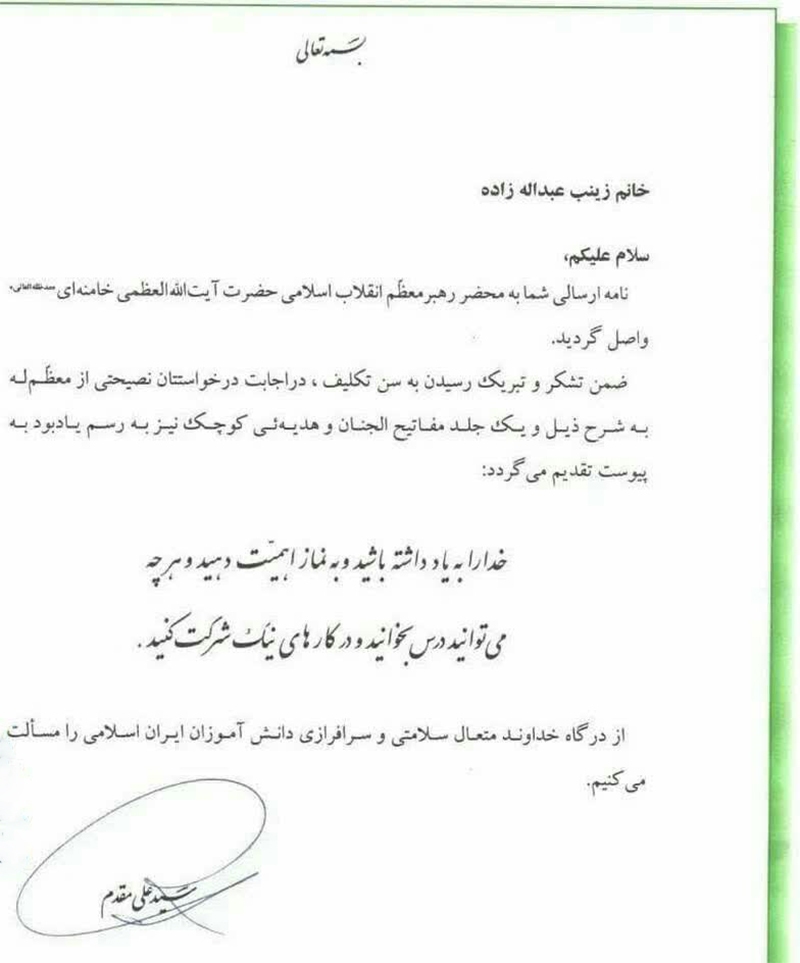 بسمه تعالی
خانم زینب عبداله زاده
سلام علیکم،
نامه ارسالی شما به محضر رهبر معظّم انقلاب اسلامی حضرت آیت‌الله العظمی خامنه‌ای مدظله‌العالی،
واصل گردید.
ضمن تشکر و تبریک رسیدن به سن تکلیف ، در اجابت درخواستتان نصیحتی از معظّم‌لـه
بـه شـرح ذیـل و یـک جلـد مفـاتیح الجنـان و هدیـه‌ئـی کوچـک نیـز بـه رسـم یـادبود بـه
پیوست تقدیم می‌گردد:
خدا را به یاد داشته باشید و به نماز اهمیّت دهید و هر چه
می‌توانید درس بخوانید و در کارهای نیک شرکت کنید .
از درگاه خداونـد متعـال سـلامتی و سـرافرازی دانـش آمـوزان ایـران اسـلامی را مسـألت
می‌کنیم.
سید علی مقدم